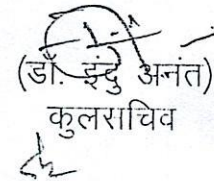 (डॉ. इंदु अनंत)
कुलसचिव